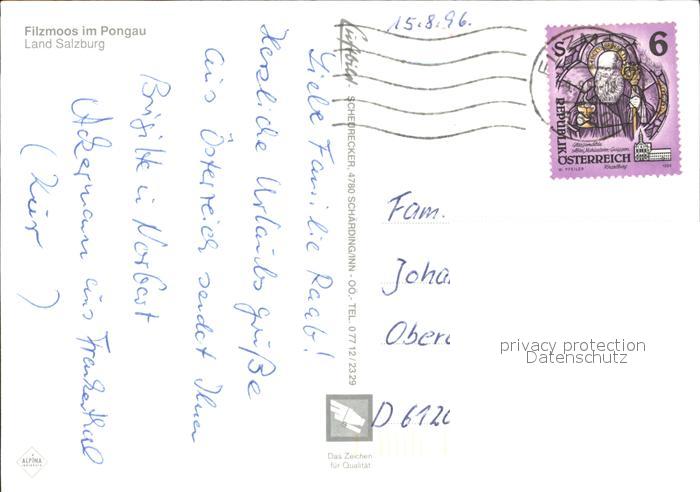 Filzmoos im Pongau
Land Salzburg
15.8.96.
Liebe Familie Raab!
Herzliche Urlaubsgrüße
aus Österreich sendet Ihnen
Brigitte u Norbert
Ackermann aus Frankenthal
(Kur)
Luftbild SCHEURECKER, 4780 SCHÄRDING/INN - OÖ,- TEL. 07712/2329
FILZM
S 6
REPUBLIK
ÖSTERREICH
W. PFEILER
Fam.
Joha
Ober
D 6120
privacy protection
Datenschutz
Das Zeichen
für Qualität
ALPINA